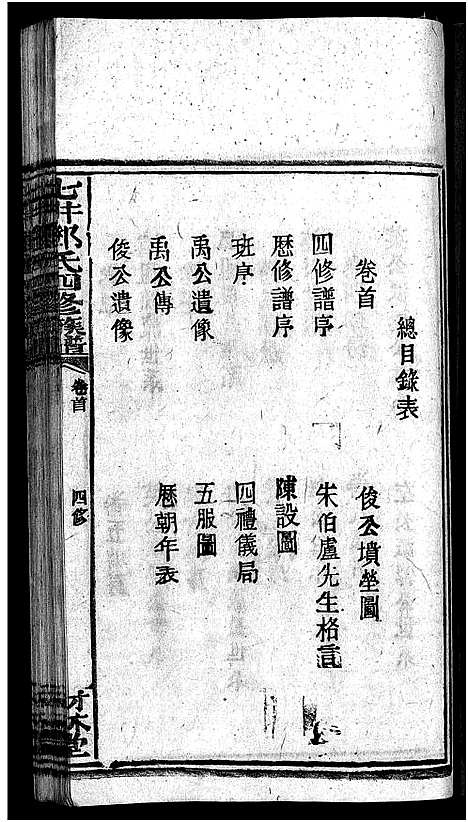 總目錄表
卷首
四修譜序
歷修譜序
班序
禹公遺像
禹公傳
俊公遺像
俊公墳塋圖
朱伯盧先生格言
陳設圖
四禮儀局
五服圖
歷朝年表
七井鄧氏四修族譜
卷首
四修